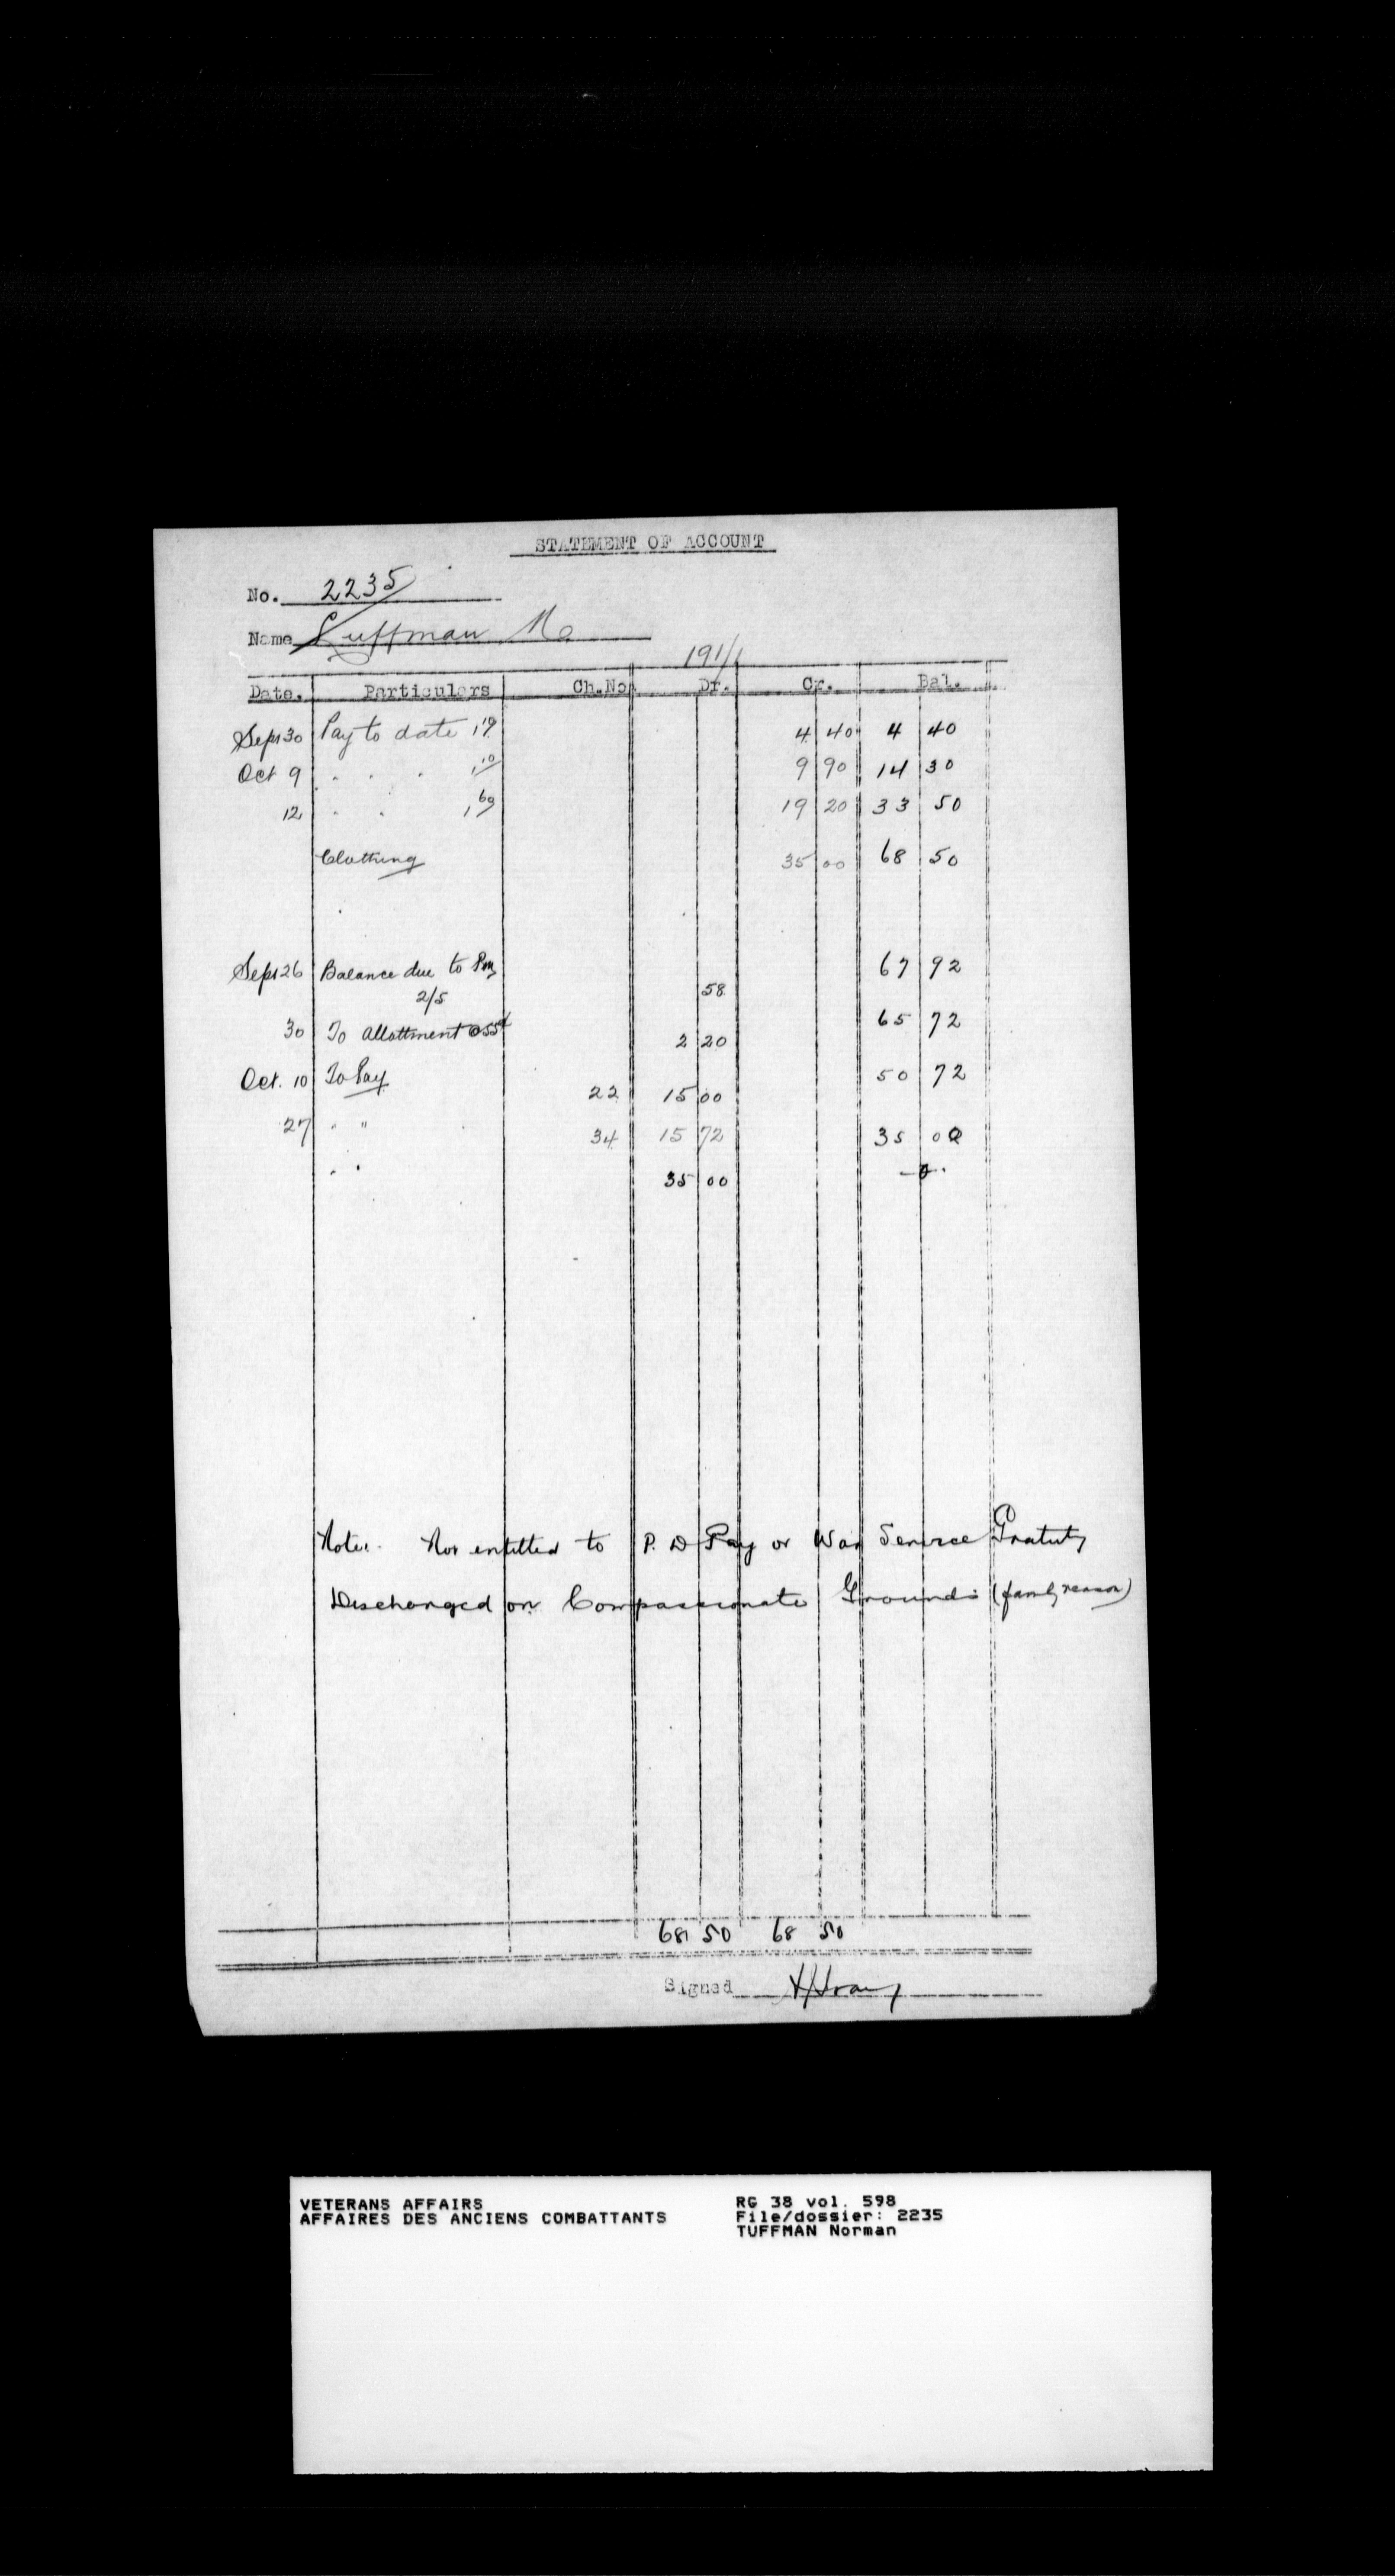 STATEMENT OF ACCOUNT
No. 2235
Name Tuffman No
191/1
Date. Particulars Ch.No. Dr. Cr. Bal.
Sept 30 Pay to date 1 10 4 40 4 40
Oct 9 " " " 1 10 9 90 14 30
12 " " 1 60 19 20 33 50
Clothing 35 00 68 50
Sept 26 Balance due to Pm 67 92
2/5 58
30 To Allottment 65 72
2 20
Oct. 10 To Pay 50 72
22 15 00
27 " " 34 15 72 35 00
" " 35 00 -0-
Note. Not entitled to P. D Pay or War Service Gratuity
Discharged on Compassionate Grounds (family reason)
68 50 68 50
Signed
VETERANS AFFAIRS RG 38 vol. 598
AFFAIRES DES ANCIENS COMBATTANTS File/dossier: 2235
TUFFMAN Norman